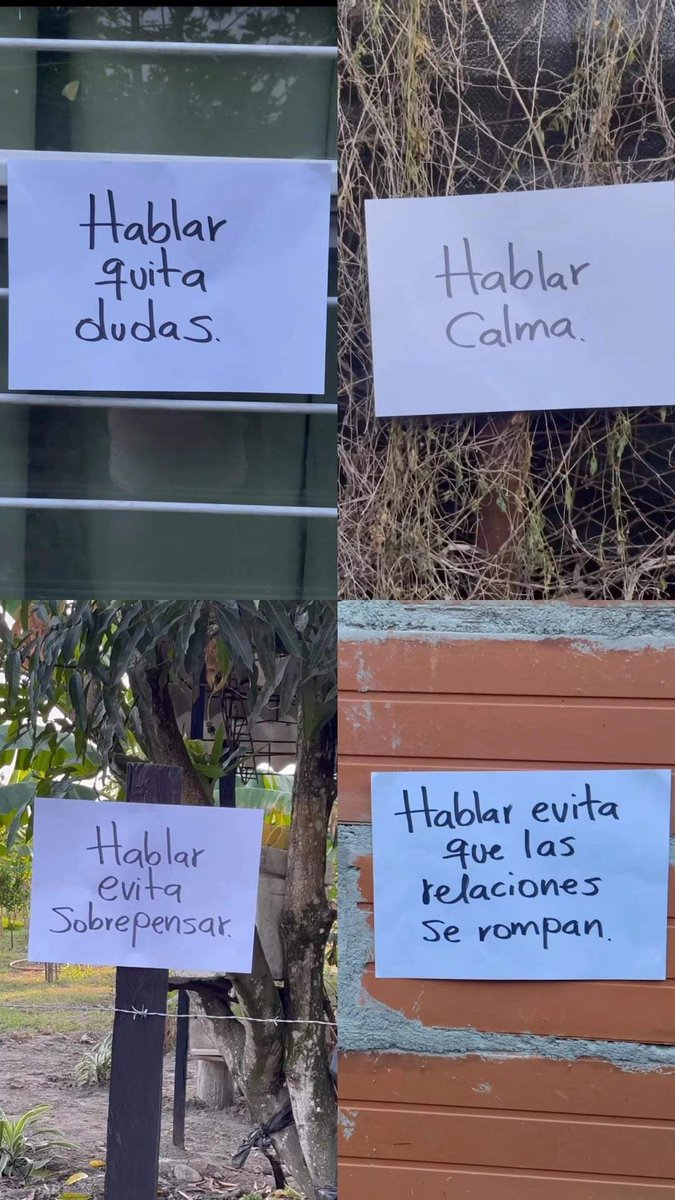 Hablar
quita
dudas.
Hablar
Calma.
Hablar
evita
Sobrepensar.
Hablar evita
que las
relaciones
se rompan.